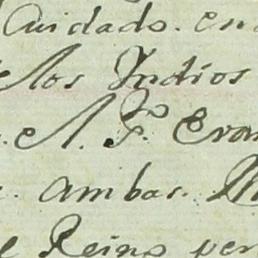 Cuidado. en
los Indios
N. F. Evan
ambas.
Reino per